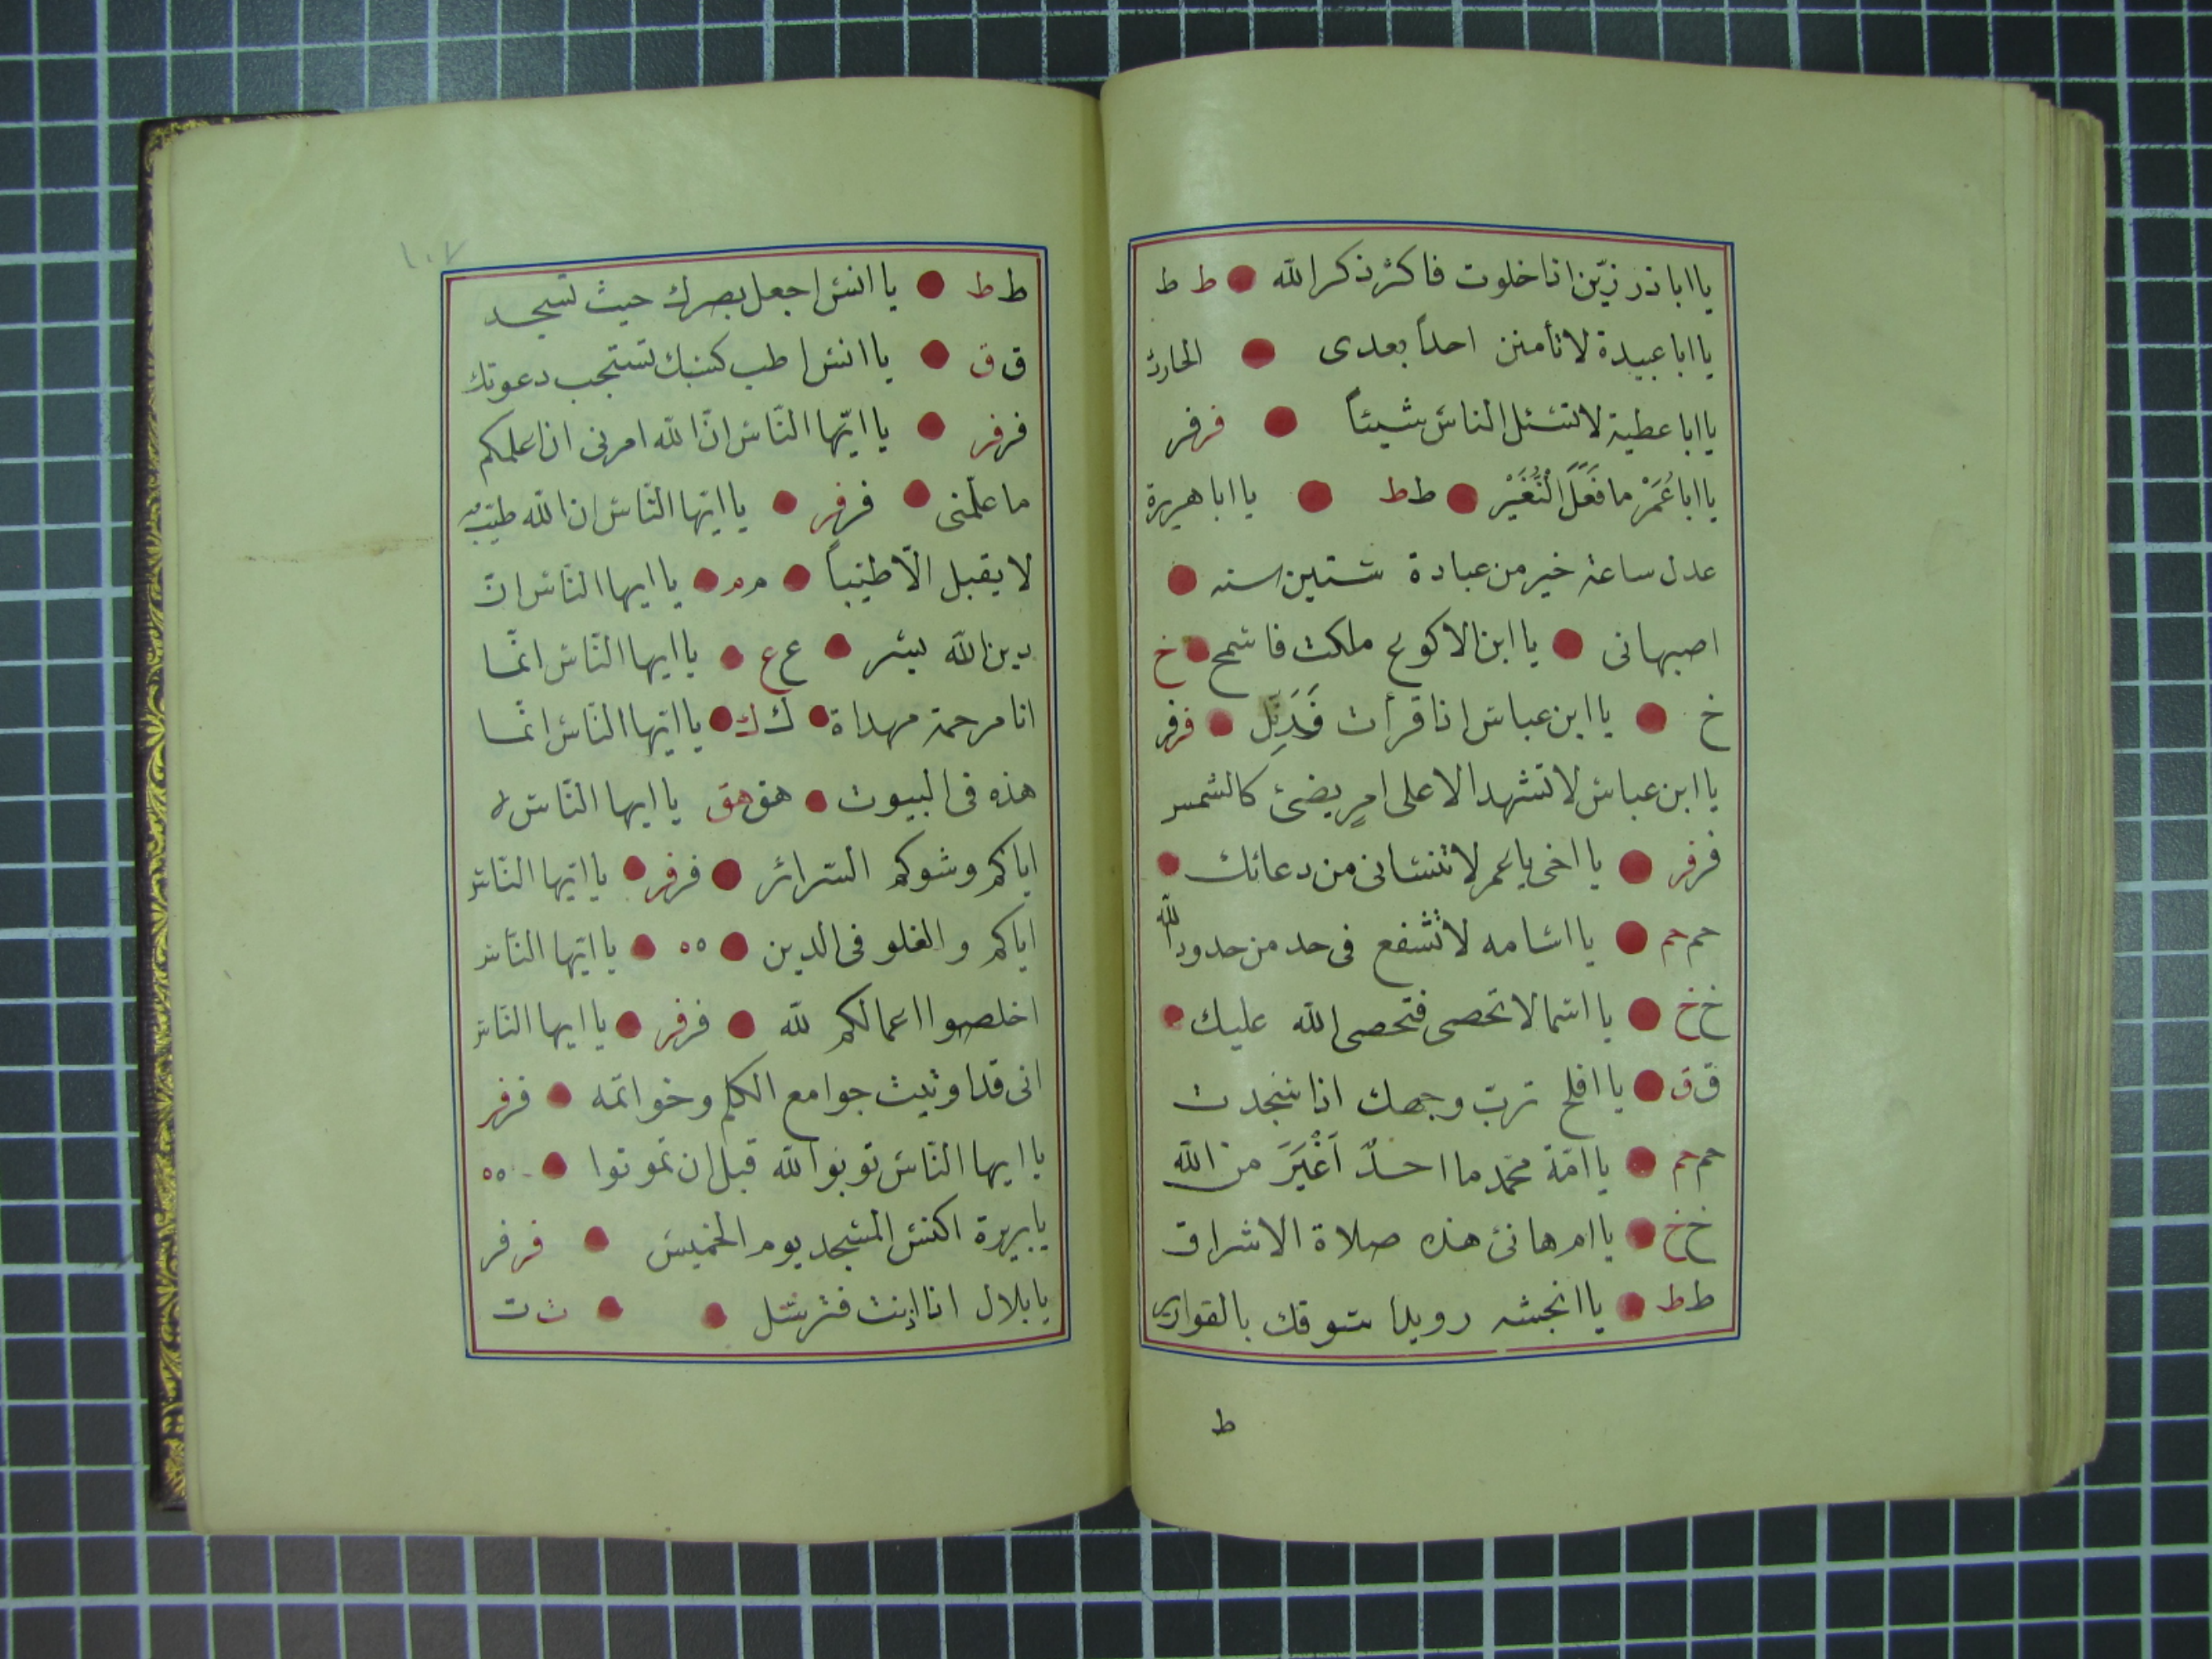 يا ابا ذر زيّن اذا خلوت فاكثر ذكر الله ط ط
يا ابا عبيدة لا تأمنن احداً بعدى الحارث
يا ابا عطية لا تسئل الناس شيئاً فر فر
يا ابا عُمَرْ ما فَعَلَ الْنُّغَيْر ط ط يا ابا هريرة
عدل ساعة خير من عبادة ستين سنه
اصبهانى يا ابن الاكوع ملكت فاسمح خ
خ يا ابن عباس اذا قرأت فَرَتِّل فر فر
يا ابن عباس لا تشهد الا على امرٍ يضئ كالشمس
فر فر يا اخى يا عمر لا تنسانى من دعائك
حم حم يا اسامه لا تشفع فى حد من حدود الله
خ خ يا اسما لا تحصى فتحصى الله عليك
ق ق يا افلح ترب وجهك اذا سجدت
حم حم يا امّة محمّد ما احدٌ اَغْيَرَ من الله
خ خ يا ام هانئ هذه صلاة الاشراق
ط ط يا انجشه رويدا سوقك بالقوارير
ط
١٠٧
ط ط يا انس اجعل بصرك حيث تسجد
ق ق يا انس اطب كسبك تستجب دعوتك
فر فر يا ايّها النّاس انّ الله امرنى ان اعلمكم
ما علّمنى فر فر يا ايّها النّاس ان الله طيّب
لا يقبل الّا طيّباً م م يا ايها النّاس انّ
دين الله يسر ع ع يا ايها النّاس انّما
انا مرحمة مهداة ك ك يا ايّها النّاس انّما
هذه فى البيوت هق هق يا ايها النّاس
اياكم وشوكم السرائر فر فر يا ايّها النّاس
اياكم والغلو فى الدين ٥٥ يا ايّها النّاس
اخلصوا اعمالكم لله فر فر يا ايها النّاس
انى قد اوتيت جوامع الكلم وخواتمه فر فر
يا ايها النّاس توبوا لله قبل ان تموتوا ٥٥
يا بريرة اكنس المسجد يوم الخميس فر فر
يا بلال اذا اذنت فترسّل ت ت